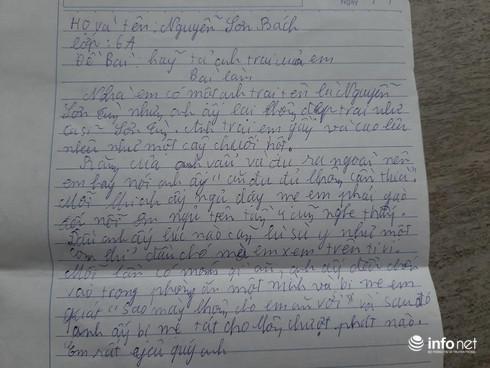 Ngày
Họ và tên: Nguyễn Sơn Bách
lớp: 6A
Đề Bài: hãy tả anh trai của em
Bài làm
Nhà em có một anh trai tên là Nguyễn
Sơn Tùng nhưng anh ấy lại không đẹp trai như
ca sĩ Sơn Tùng. Anh trai em gầy và cao lêu
nghêu như một cây chuối hột.
Răng của anh vẩu và đưa ra ngoài nên
em hay nói anh ấy "ăn đu đủ không cần thìa".
Mỗi khi anh ấy ngủ dậy mẹ em phải gào
đến nỗi ông ngụ trên tầng 4 cũng nghe thấy.
Đầu anh ấy lúc nào cũng bù xù y như một
con chó mẹ em xem trên ti vi.
Mỗi lần có món gì ăn, anh ấy đều
vào trong phòng ăn một mình và bị mẹ em
quát "sao mày không cho em ăn với" và sau đó
anh ấy bị mẹ tát cho không trượt phát nào.
Em rất yêu quý anh
infonet